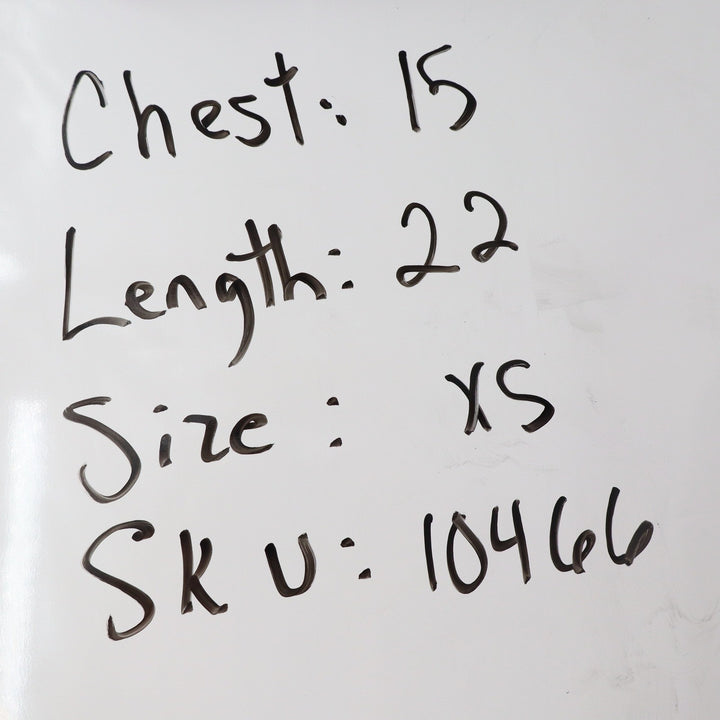 Chest: 15
Length: 22
Size: XS
SKU: 10466